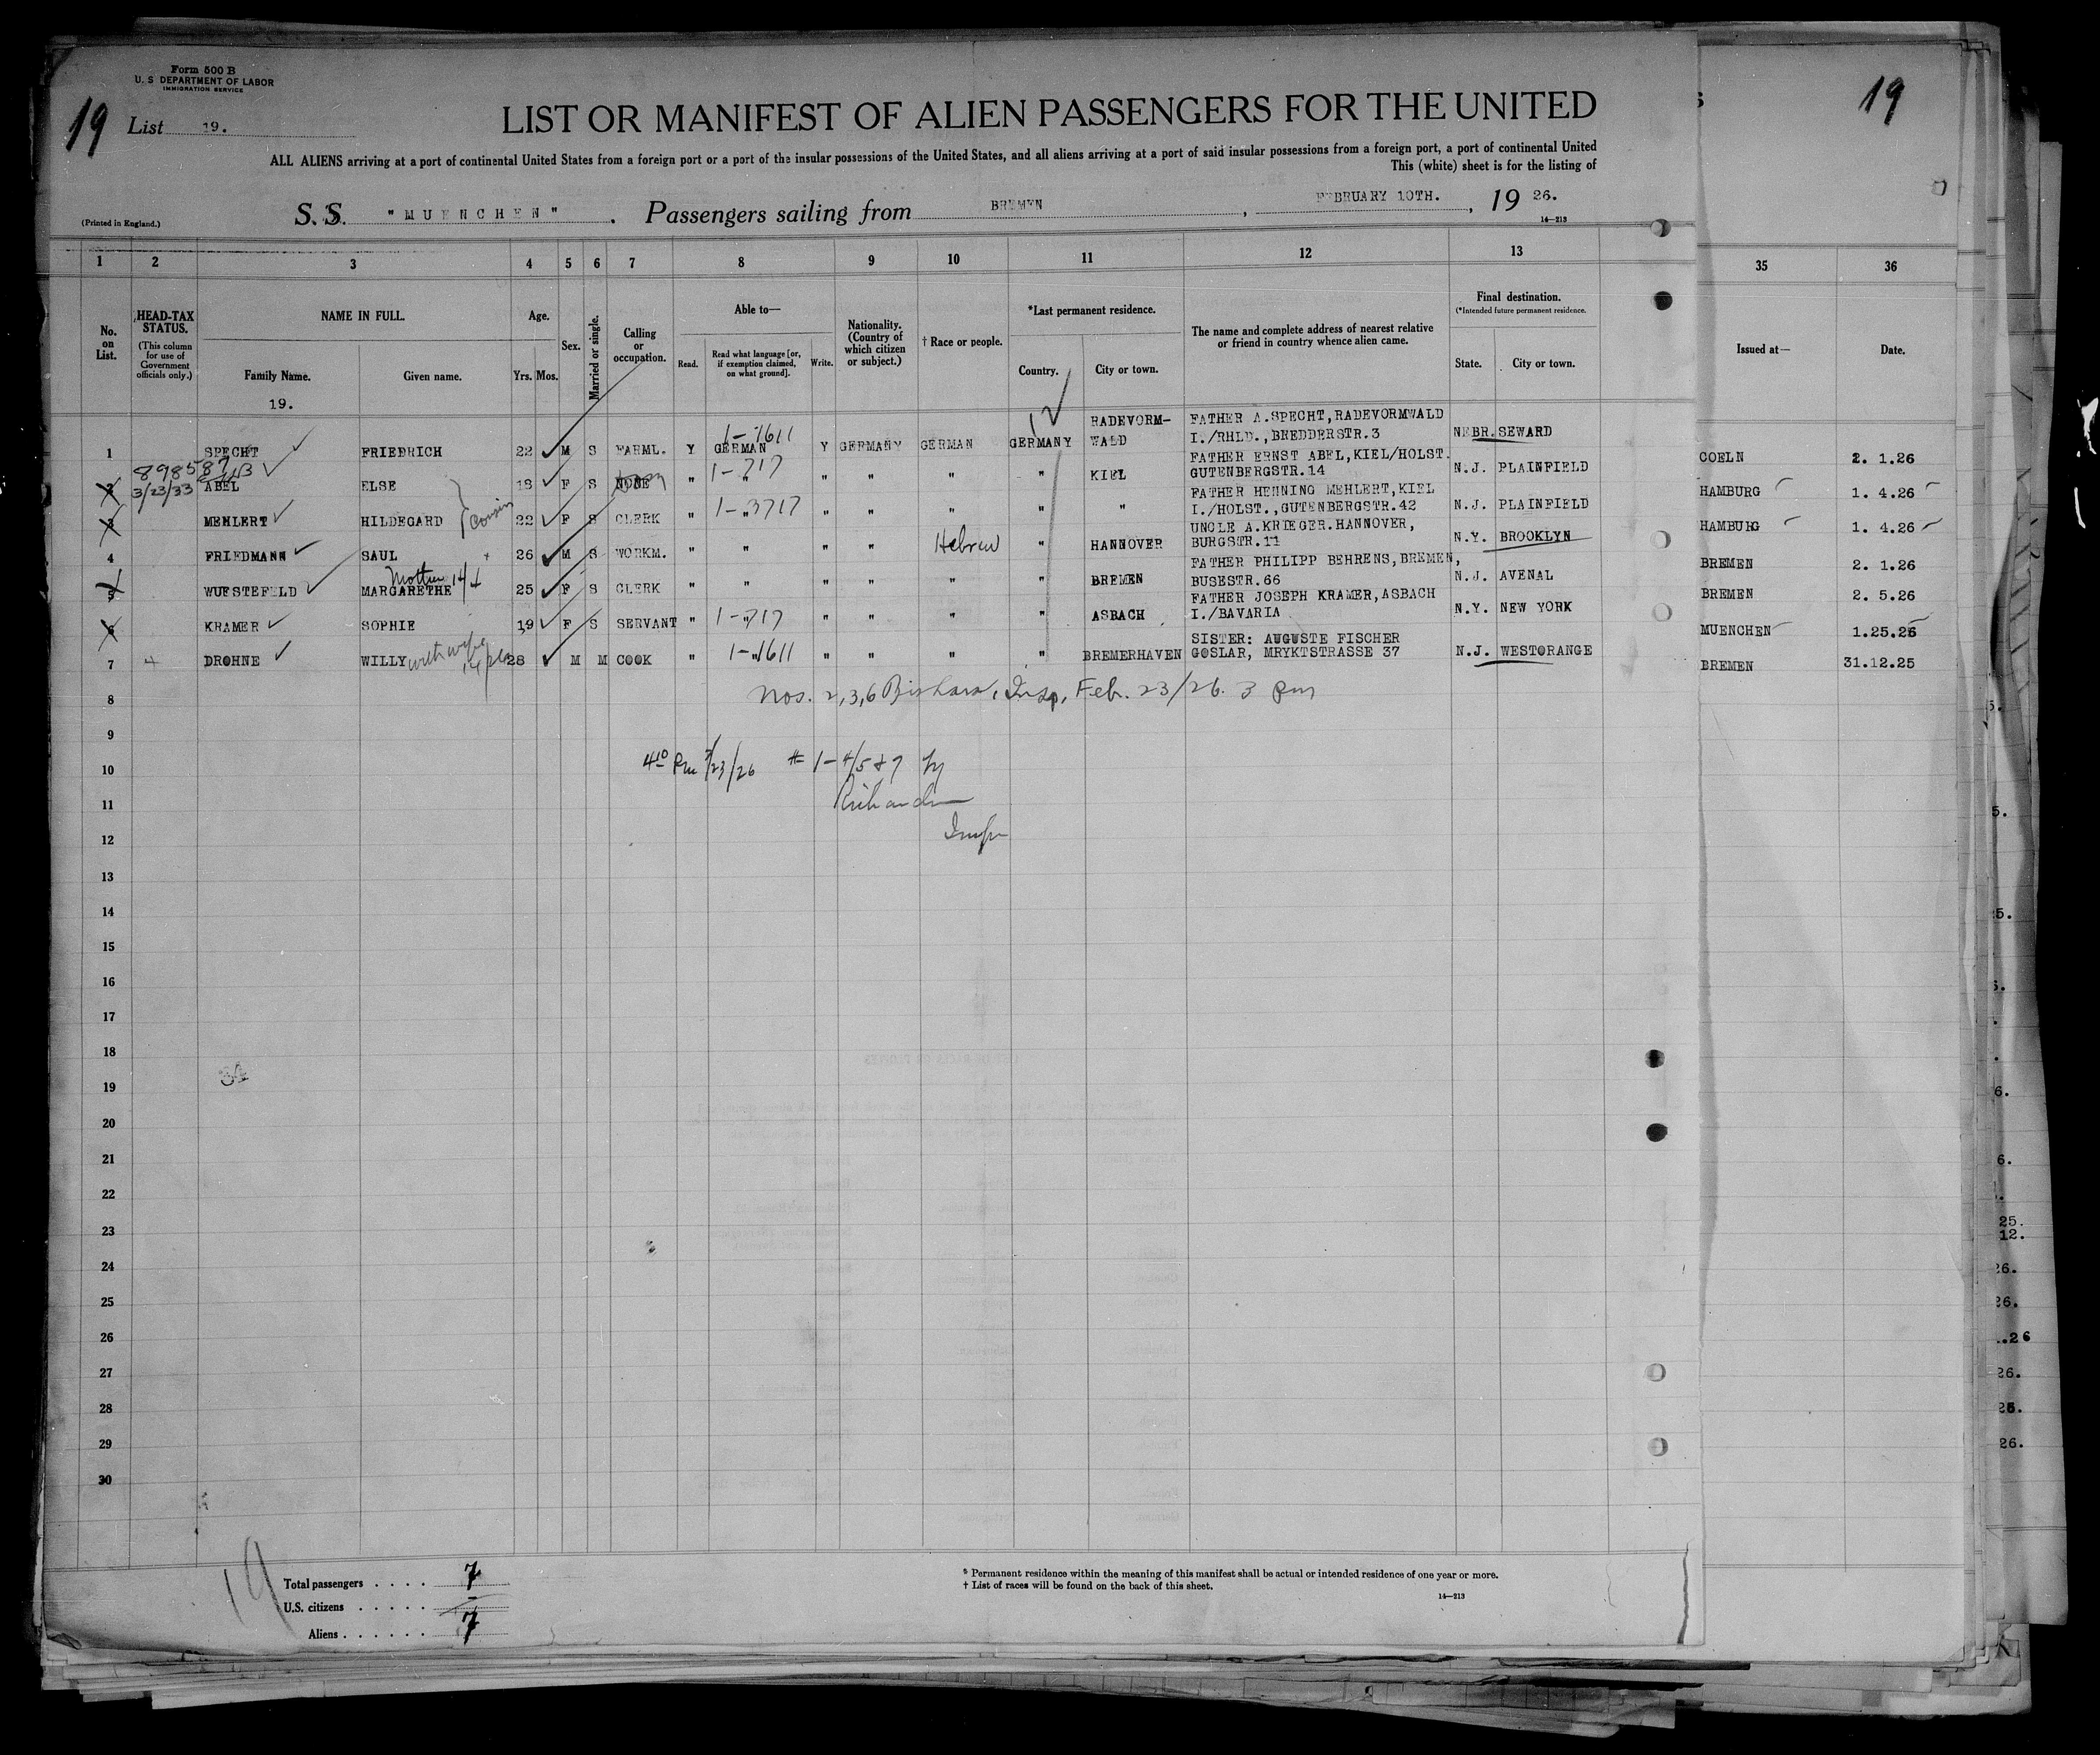 Form 500 B
U. S DEPARTMENT OF LABOR
IMMIGRATION SERVICE
19
List 19.
LIST OR MANIFEST OF ALIEN PASSENGERS FOR THE UNITED
S
19
ALL ALIENS arriving at a port of continental United States from a foreign port or a port of the insular possessions of the United States, and all aliens arriving at a port of said insular possessions from a foreign port, a port of continental United
This (white) sheet is for the listing of
(Printed in England.)
S. S. "MUENCHEN" . Passengers sailing from BREMEN , FEBRUARY 10TH. , 19 26.
14—213
1 2 3 4 5 6 7 8 9 10 11 12 13 35 36
No. on List.
HEAD-TAX STATUS.
(This column for use of Government officials only.)
NAME IN FULL.
Family Name.
Given name.
19.
Age.
Yrs. Mos.
Sex.
Married or single.
Calling or occupation.
Able to—
Read.
Read what language [or, if exemption claimed, on what ground].
Write.
Nationality. (Country of which citizen or subject.)
† Race or people.
*Last permanent residence.
Country.
City or town.
The name and complete address of nearest relative or friend in country whence alien came.
Final destination.
(*Intended future permanent residence.
State.
City or town.
Issued at—
Date.
12
1 SPECHT FRIEDRICH 22 M S FARML. Y GERMAN 1-1611 Y GERMANY GERMAN GERMANY RADEVORM-WALD FATHER A.SPECHT,RADEVORMWALD I./RHLD.,BREDDERSTR.3 NEBR. SEWARD COELN 2. 1.26
898587
3/23/33
2 ABEL ELSE 18 F S NONE " 1-717 " " " " " KIEL FATHER ERNST ABEL,KIEL/HOLST. GUTENBERGSTR.14 N.J. PLAINFIELD HAMBURG 1. 4.26
3 MEHLERT HILDEGARD Cousin 22 F S CLERK " 1-3717 " " " " " " FATHER HENNING MEHLERT,KIEL I./HOLST.,GUTENBERGSTR.42 N.J. PLAINFIELD HAMBURG 1. 4.26
4 FRIEDMANN SAUL 26 M S WORKM. " " " " Hebrew " HANNOVER UNCLE A.KRIEGER.HANNOVER, BURGSTR.11 N.Y. BROOKLYN BREMEN 2. 1.26
5 WUESTEFELD MARGARETHE Mother 25 F S CLERK " " " " " " BREMEN FATHER PHILIPP BEHRENS,BREMEN, BUSESTR.66 N.J. AVENAL BREMEN 2. 5.26
6 KRAMER SOPHIE 19 F S SERVANT " 1-717 " " " " " ASBACH FATHER JOSEPH KRAMER,ASBACH I./BAVARIA N.Y. NEW YORK MUENCHEN 1.25.26
7 DROHNE WILLY with wife 28 M M COOK " 1-1611 " " " " " BREMERHAVEN SISTER: AUGUSTE FISCHER GOSLAR, MRYKTSTRASSE 37 N.J. WESTORANGE BREMEN 31.12.25
8 Nos. 2,3,6 Insp, Feb. 23/26. 3 pm
9
10 4¹⁰ Pm 2/23/26 # 1-4/5 & 7 by
11
12 Insp
13
14
15
16
17
18
19
20
21
22
23
24
25
26
27
28
29
30
19
Total passengers . . . . 7
U.S. citizens . . . . .
Aliens . . . . . . 7
* Permanent residence within the meaning of this manifest shall be actual or intended residence of one year or more.
† List of races will be found on the back of this sheet.
14—213